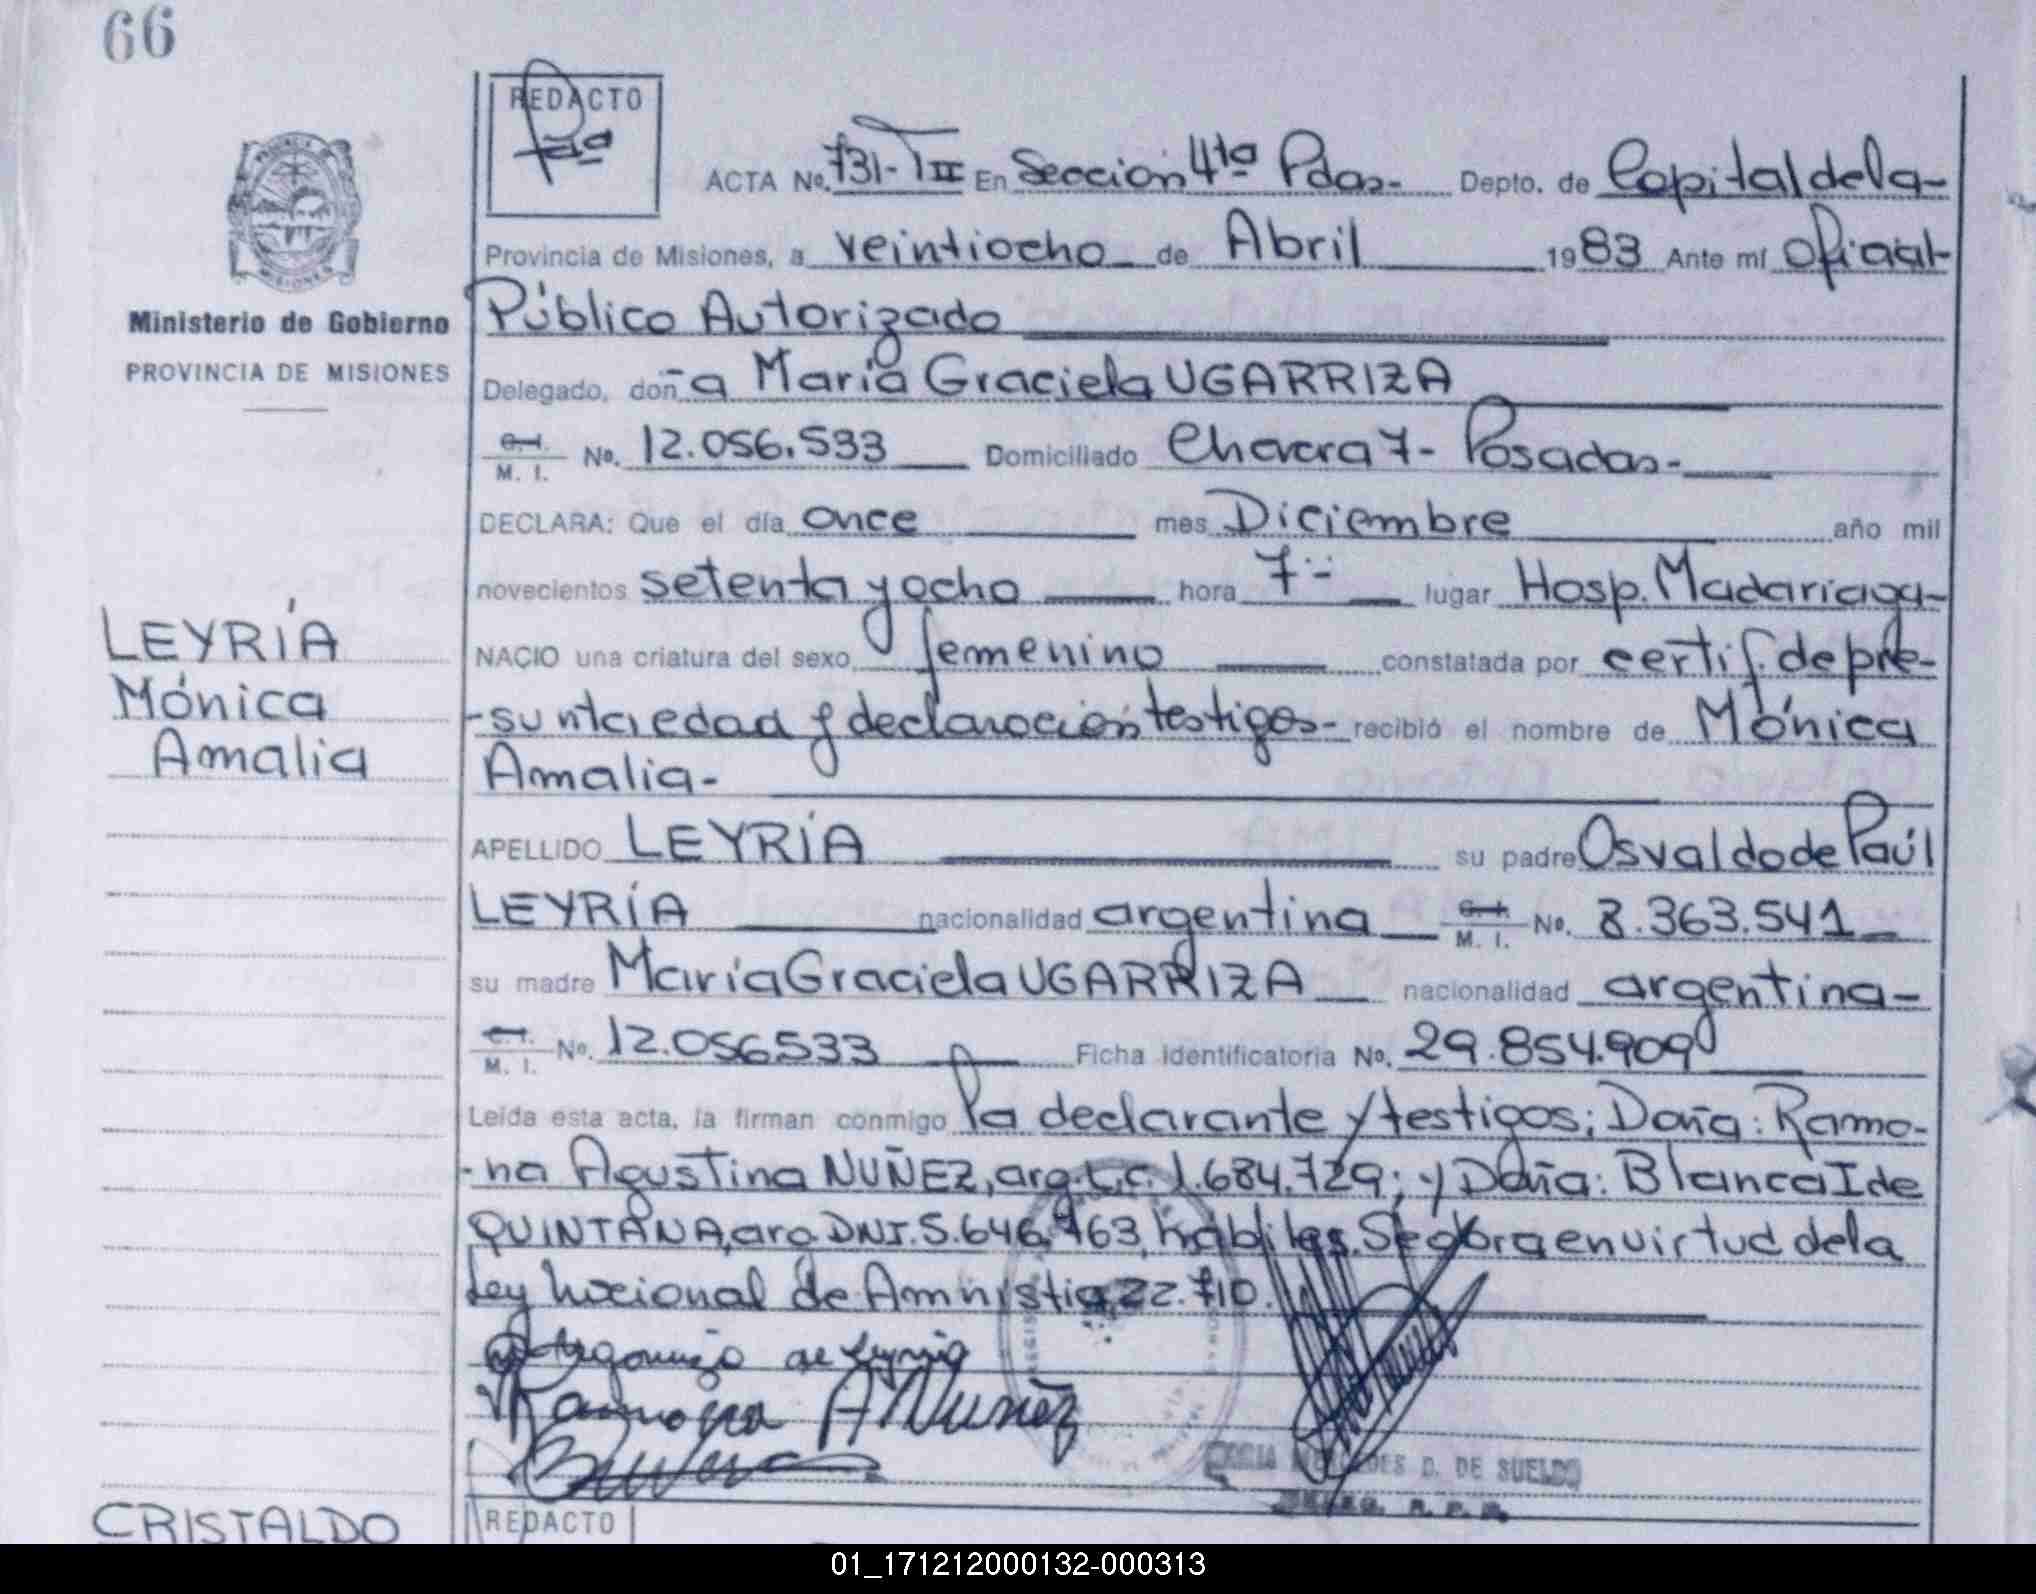 66
REDACTO
ACTA No. 731-TIII En Sección 4ta Pdas.- Depto. de Capital de la-
Provincia de Misiones, a veintiocho de Abril 1983 Ante mí Oficial
Ministerio de Gobierno
PROVINCIA DE MISIONES
Público Autorizado
Delegado, doña María Graciela UGARRIZA
C. I. / M. I. No. 12.056.533 Domiciliado Chacra 7- Posadas-
DECLARA: Que el día once mes Diciembre año mil
novecientos setenta y ocho hora 7 lugar Hosp. Madariaga-
LEYRÍA
Mónica
Amalia
NACIO una criatura del sexo femenino constatada por certif. de pre-
-sunta edad y declaración testigos- recibió el nombre de Mónica
Amalia-
APELLIDO LEYRÍA su padre Osvaldo de Paúl
LEYRÍA nacionalidad argentina C. I. / M. I. No. 8.363.541
su madre María Graciela UGARRIZA nacionalidad argentina-
C. I. / M. I. No. 12.056533 Ficha identificatoria No. 29.854.909
Leída esta acta, la firman conmigo la declarante y testigos; Doña: Ramo-
-na Agustina NUÑEZ, arg. L.C. 1.684.729; y Doña: Blanca I de
QUINTANA, arg. DNI. 5.646.763, hábiles. Se obra en virtud de la
Ley Nacional de Amnistia 22.710.
de Leyria
Ramona A Nuñez
MERCEDES D. DE SUELDO
CRISTALDO
REDACTO
01_171212000132-000313